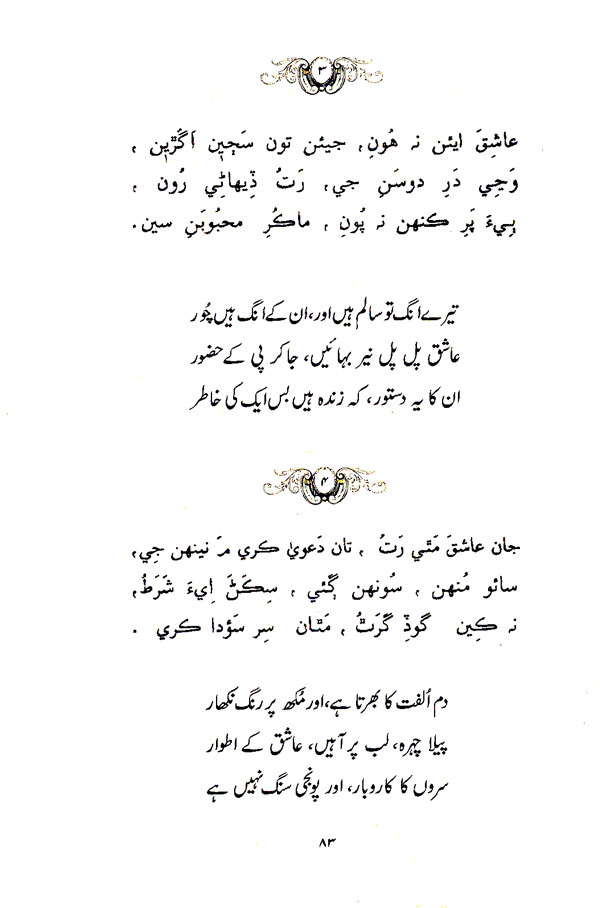 ۳
عاشِقَ ايئن نہ هُونِ، جيئن تون سَڄِين اَگَڙِين ،
وَڃِي دَرِ دوسَنِ جي، رَتُ ڏِيهاڻِي رُون ،
ٻِيءَ پَرِ ڪنهن نہ پُونِ ، ماڪُرِ محبُوبَنِ سين.
تیرے انگ تو سالم ہیں اور، ان کے انگ ہیں چُور
عاشق پل پل نیر بہائیں، جا کر پی کے حضور
ان کا یہ دستور، کہ زندہ ہیں بس ایک کی خاطر
۴
جان عاشقَ مَٿي رَتُ ، تان دَعويٰ ڪري مَ نينهن جِي،
سائو مُنهن ، سُونهن ڳئي ، سِڪَڻَ اِيءَ شَرَطُ،
نہ ڪِين گوڏِ گَرَٿُ، مَٿان سِر سَؤدا ڪري .
دم اُلفت کا بھرتا ہے، اور مُکھ پر رنگ نکھار
پیلا چہرہ، لب پر آہیں، عاشق کے اطوار
سروں کا کاروبار، اور پونجی سنگ نہیں ہے
۸۳